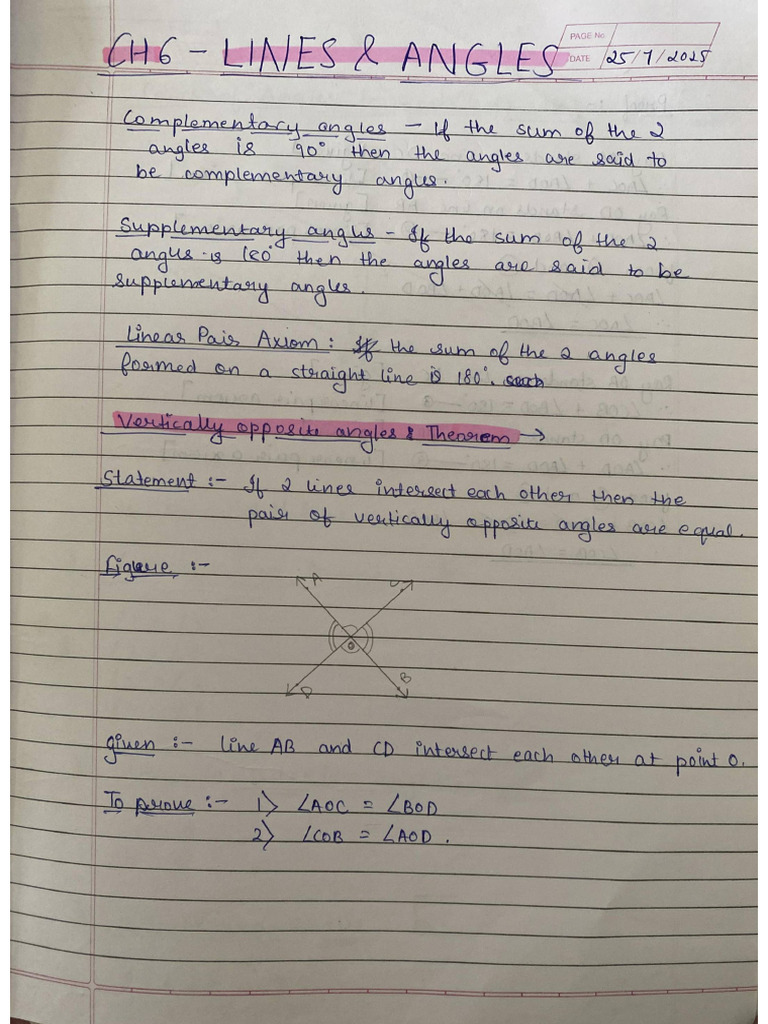 CH 6 - LINES & ANGLES
PAGE No.
DATE 25/7/2025
Complementary angles - If the sum of the 2
angles is 90° then the angles are said to
be complementary angles.
Supplementary angles - If the sum of the 2
angles is 180° then the angles are said to be
supplementary angles.
Linear Pair Axiom : If the sum of the 2 angles
formed on a straight line is 180°.
Vertically opposite angles & Theorem →
Statement :- If 2 lines intersect each other then the
pair of vertically opposite angles are equal.
figure :-
A C
O
D B
given :- line AB and CD intersect each other at point O.
To prove :- 1) ∠AOC = ∠BOD
2) ∠COB = ∠AOD.